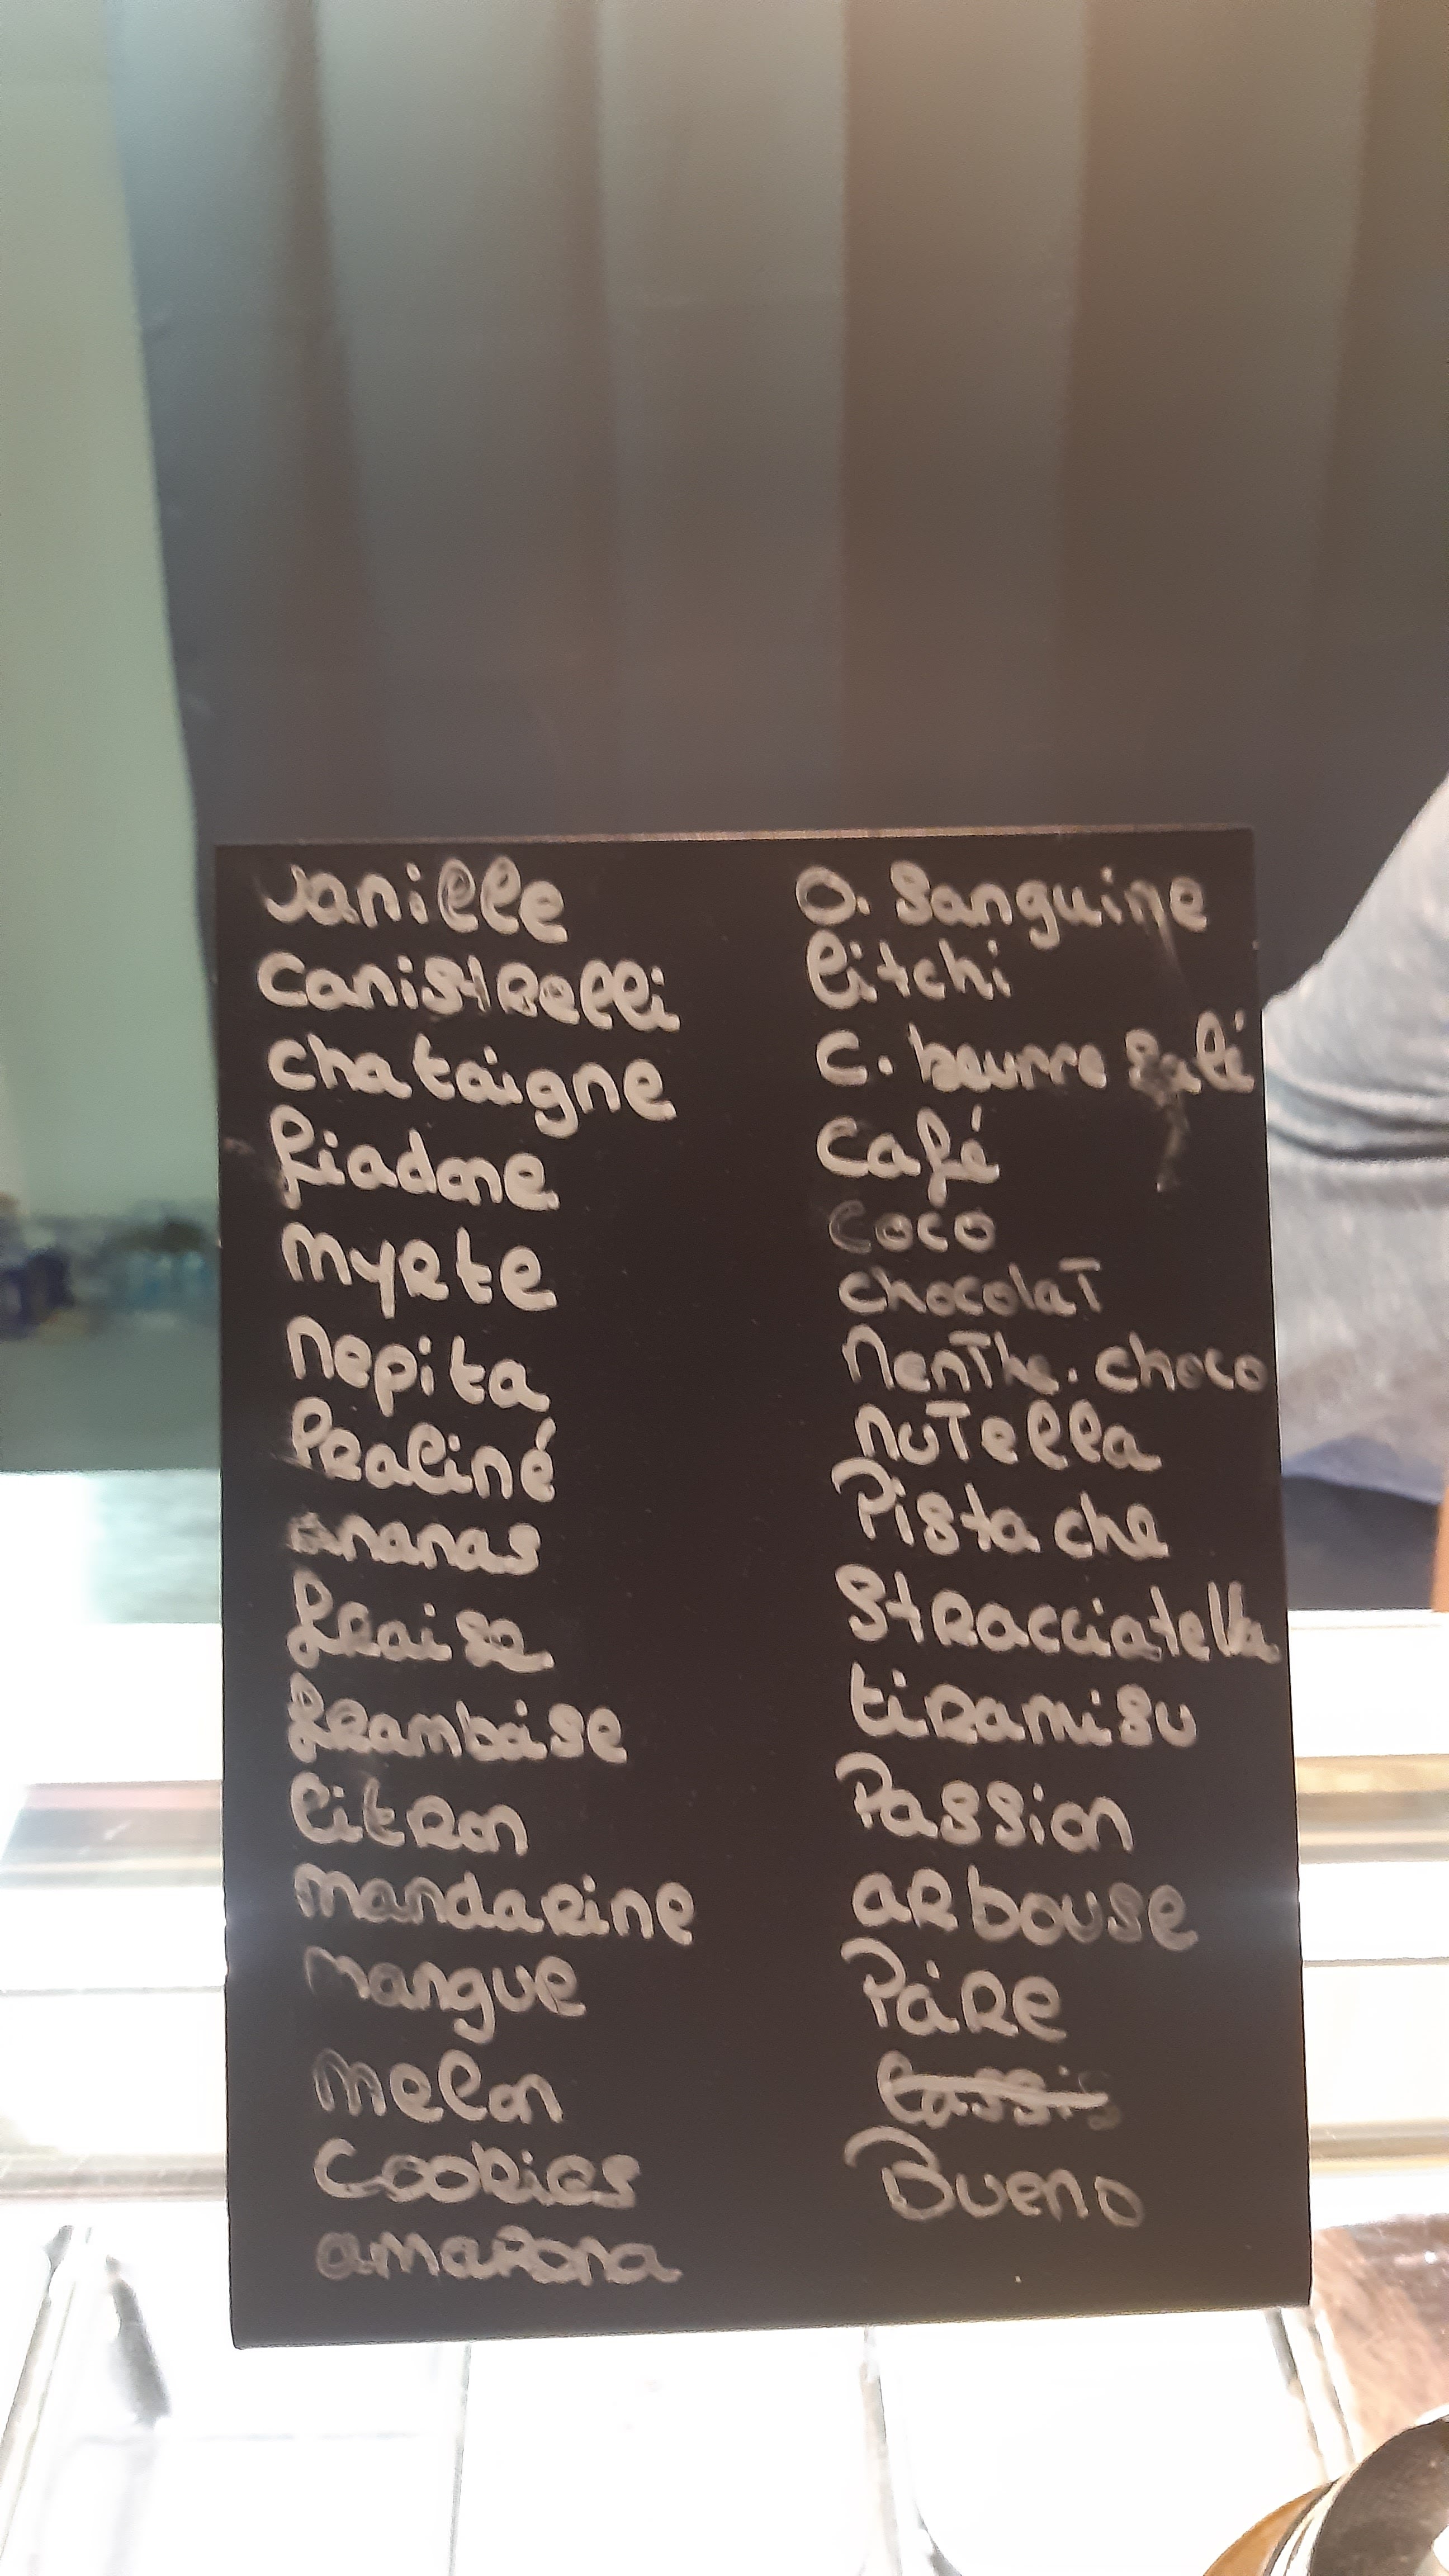 Vanille
Canistrelli
chataigne
fiadone
myrte
nepita
Praliné
ananas
fraise
framboise
Citron
mandarine
mangue
melon
Cookies
amarena
O. Sanguine
litchi
C. beurre salé
Café
Coco
chocolaT
MenThe. choco
nuTella
Pistache
Stracciatella
tiramisu
Passion
arbouse
Poire
Cassis
Bueno